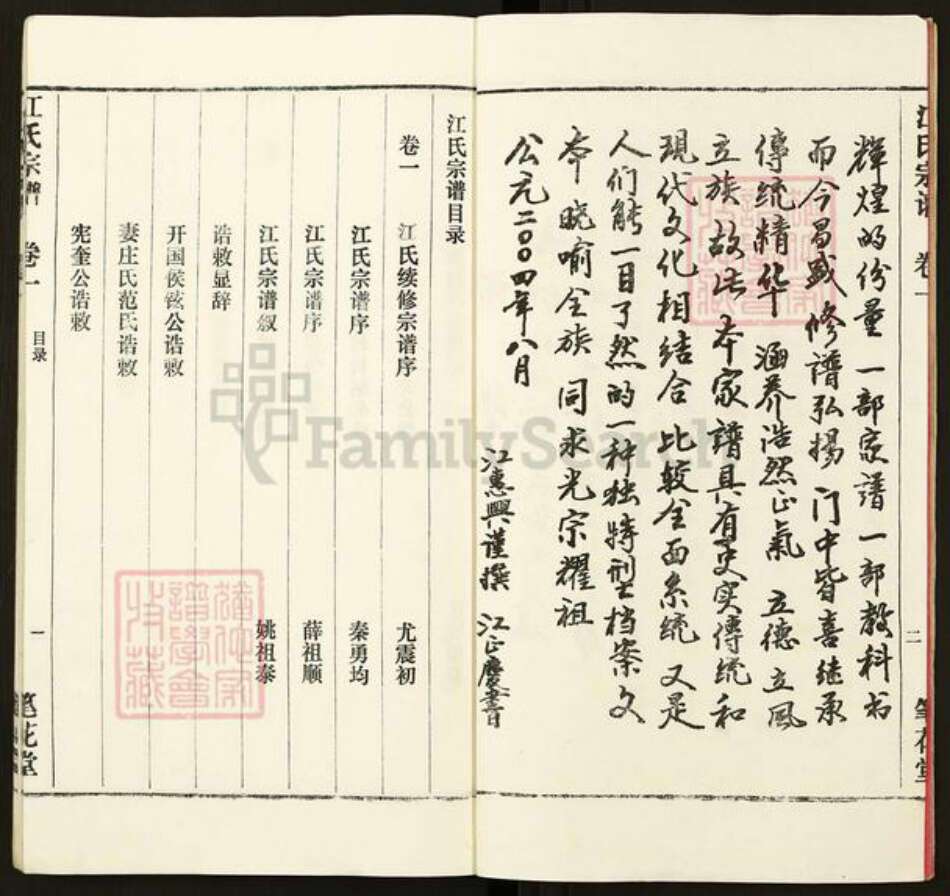 江氏宗谱 卷一 二 笔花堂
輝煌的份量 一部家譜 一部教科书
而今昌盛修譜弘揚 门中皆喜继承
傳统精华 涵养浩然正氣 立德立风
立族 故此 本家譜具有史实傳统和
现代文化相结合 比较全面系统 又是
人们能一目了然的一种独特型档案文
本 晓喻全族 同求光宗耀祖
公元二〇〇四年八月
江惠興谨撰 江正慶書
江氏宗谱目录
卷一 江氏续修宗谱序 尤震初
江氏宗谱序 秦勇均
江氏宗谱序 薛祖顺
江氏宗谱叙 姚祖泰
诰敕显辞
开国侯铉公诰敕
妻庄氏范氏诰敕
宪奎公诰敕
江氏宗谱 卷一 目录 一 笔花堂
FamilySearch